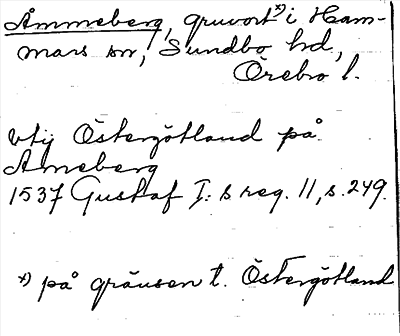 Åmmeberg, gruvort *) i Ham-
mars sn, Sundbo hd,
Örebro l.
vtij Östergötland på
Ameberg
1537 Gustaf I:s reg. 11, s. 249.
*) på gränsen t. Östergötland